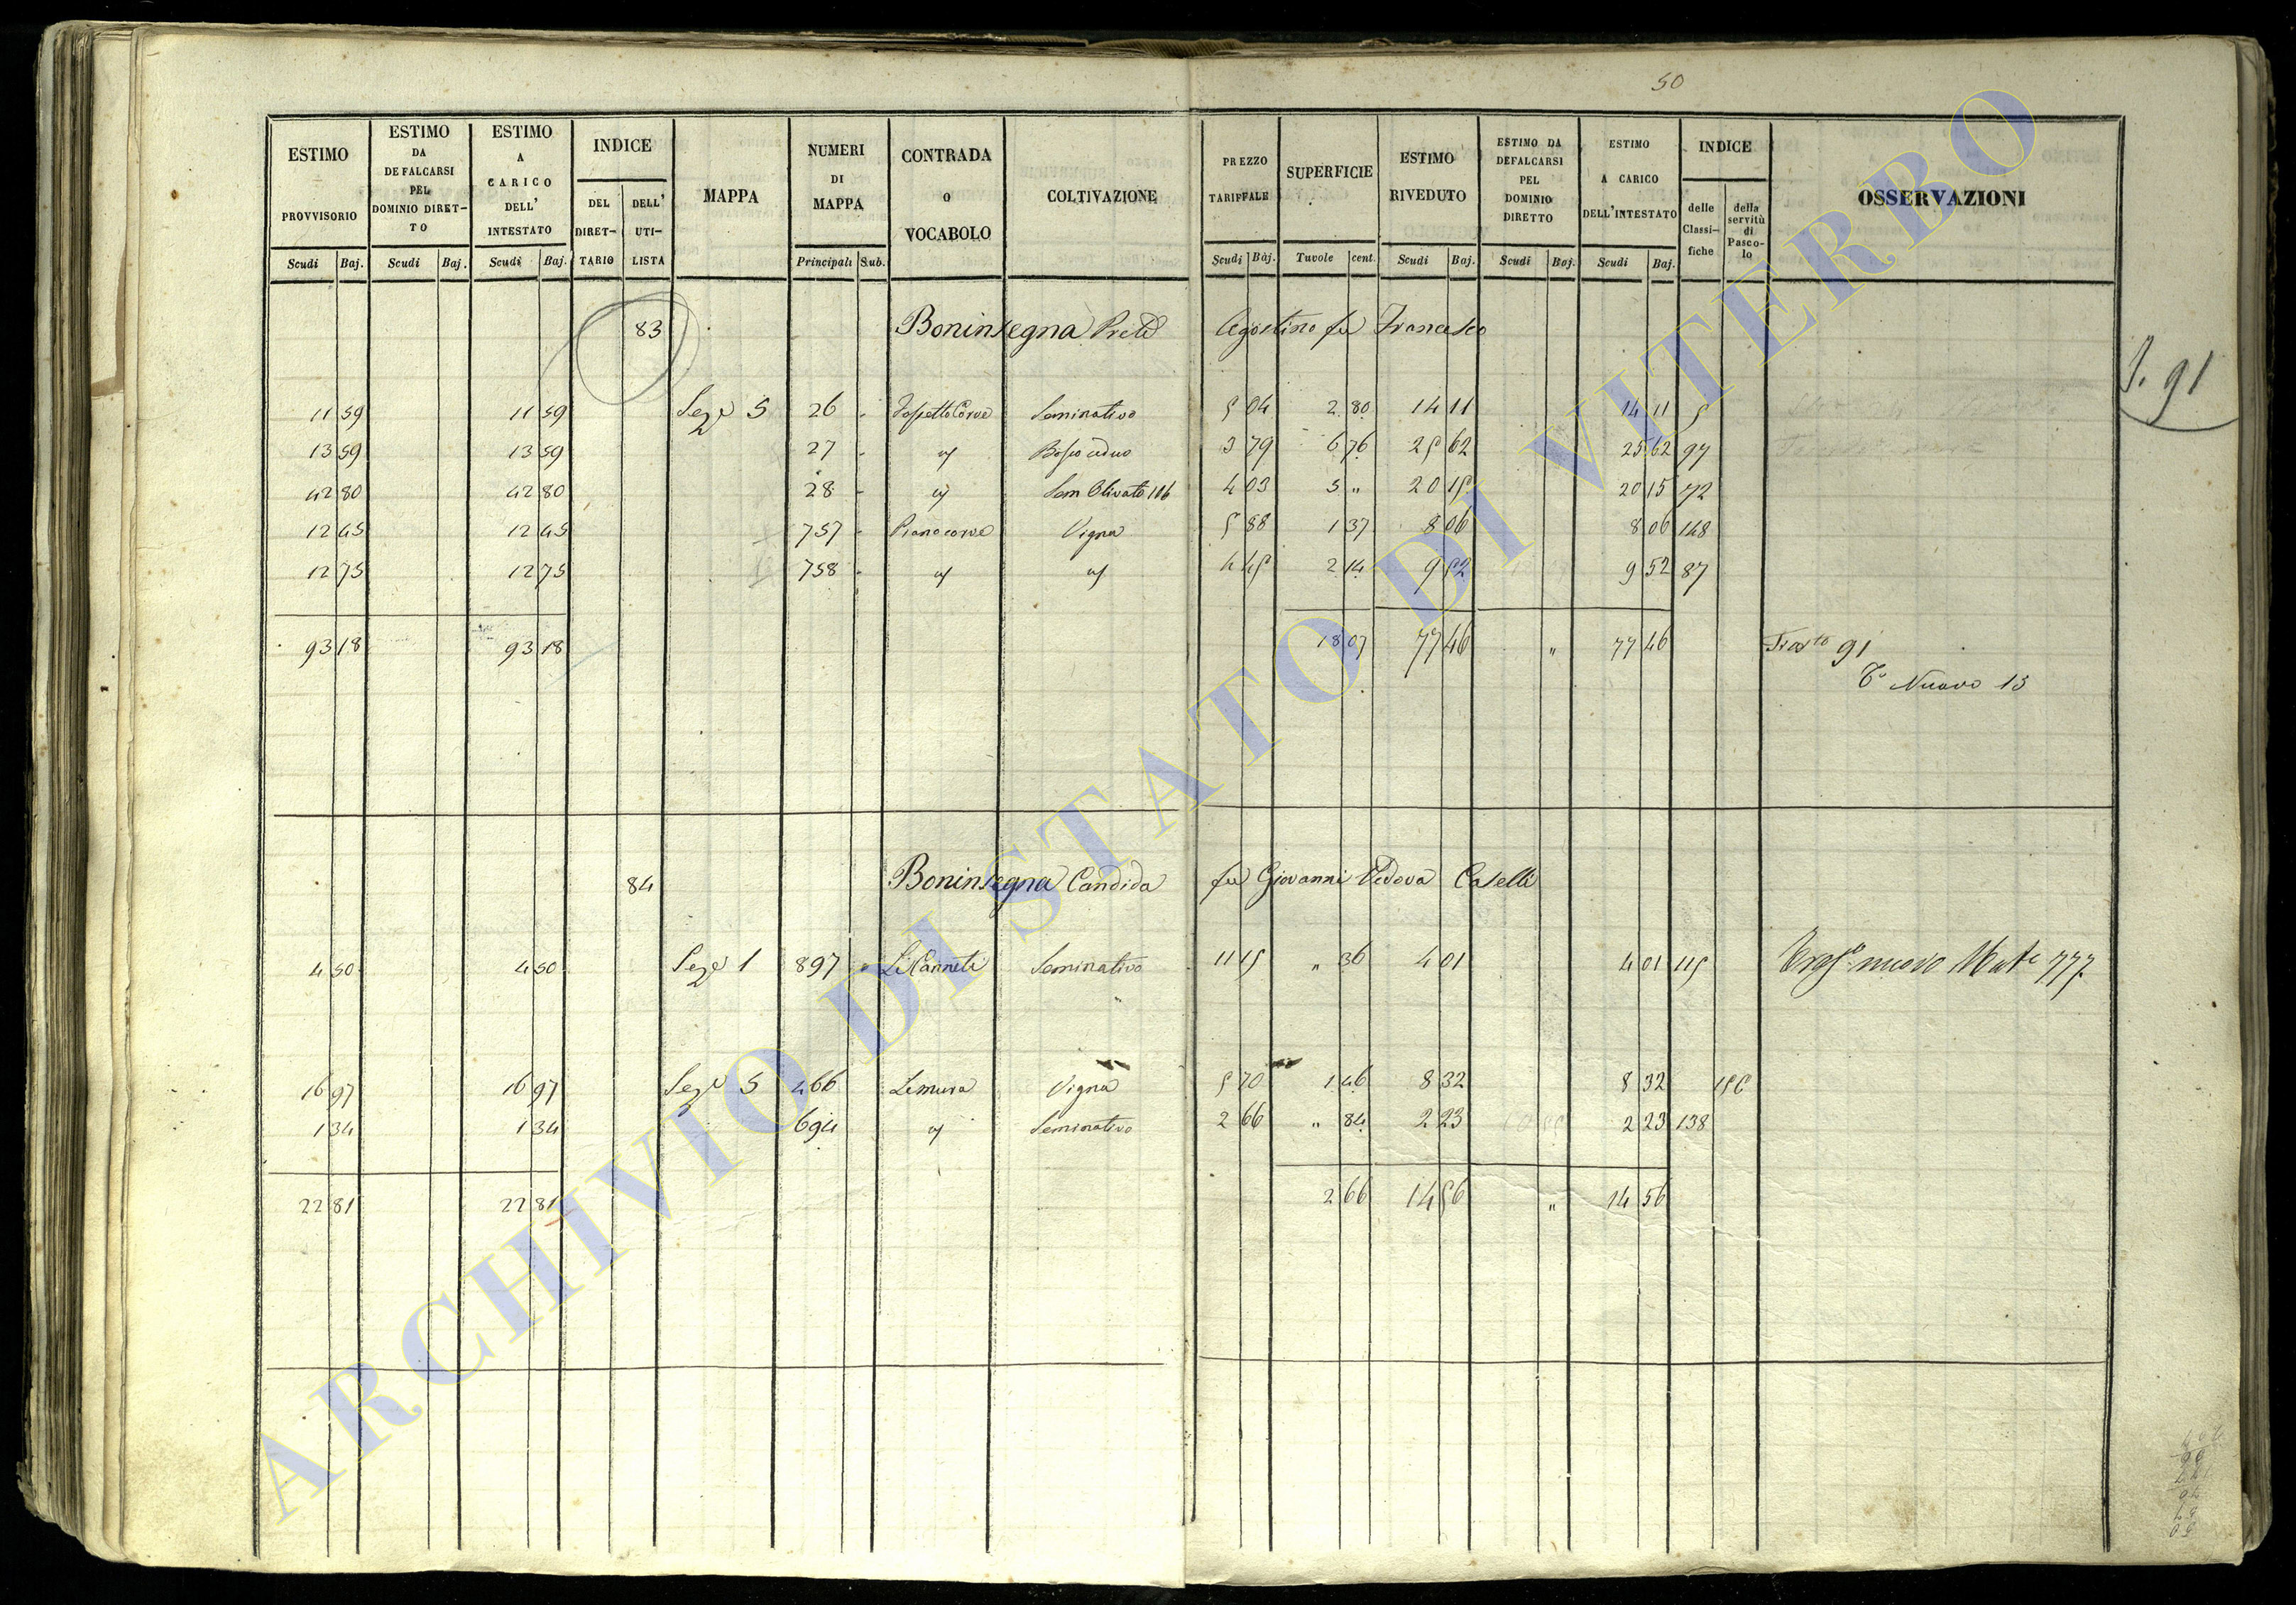 50
ESTIMO PROVVISORIO Scudi Baj.
ESTIMO DA DEFALCARSI PEL DOMINIO DIRET-TO Scudi Baj.
ESTIMO A CARICO DELL' INTESTATO Scudi Baj.
INDICE DEL DIRET-TARIO DELL' UTI-LISTA
MAPPA
NUMERI DI MAPPA Principali Sub.
CONTRADA O VOCABOLO
COLTIVAZIONE
PREZZO TARIFFALE Scudi Baj.
SUPERFICIE Tavole cent.
ESTIMO RIVEDUTO Scudi Baj.
ESTIMO DA DEFALCARSI PEL DOMINIO DIRETTO Scudi Baj.
ESTIMO A CARICO DELL'INTESTATO Scudi Baj.
INDICE delle Classi-fiche della servitù di Pasco-lo
OSSERVAZIONI
83 Boninsegna Prete Agostino fu Francesco
91
11 59 11 59 Seze 5 26 Seminativo 5 04 2 80 14 11 14 11 5
13 59 13 59 27 Bosco ceduo 3 79 6 76 25 62 25 62 97
42 80 42 80 28 Sem Olivato 106 4 03 5 " 20 15 20 15 72
12 45 12 45 757 Pianocorve Vigna 5 88 1 37 8 06 8 06 148
12 75 12 75 758 4 45 2 14 9 52 9 52 87
93 18 93 18 18 07 77 46 " 77 46 91
Nuovo 13
84 Boninsegna Candida fu Giovanni Vedova Caselli
4 50 4 50 Seze 1 897 Li Canneti Seminativo 11 15 " 36 4 01 4 01 115 nuovo 777
16 97 16 97 Seze 5 466 Lemura Vigna 5 70 1 46 8 32 8 32 156
1 34 1 34 694 Seminativo 2 66 " 84 2 23 2 23 138
22 81 22 81 2 66 14 56 " 14 56
ARCHIVIO DI STATO DI VITERBO